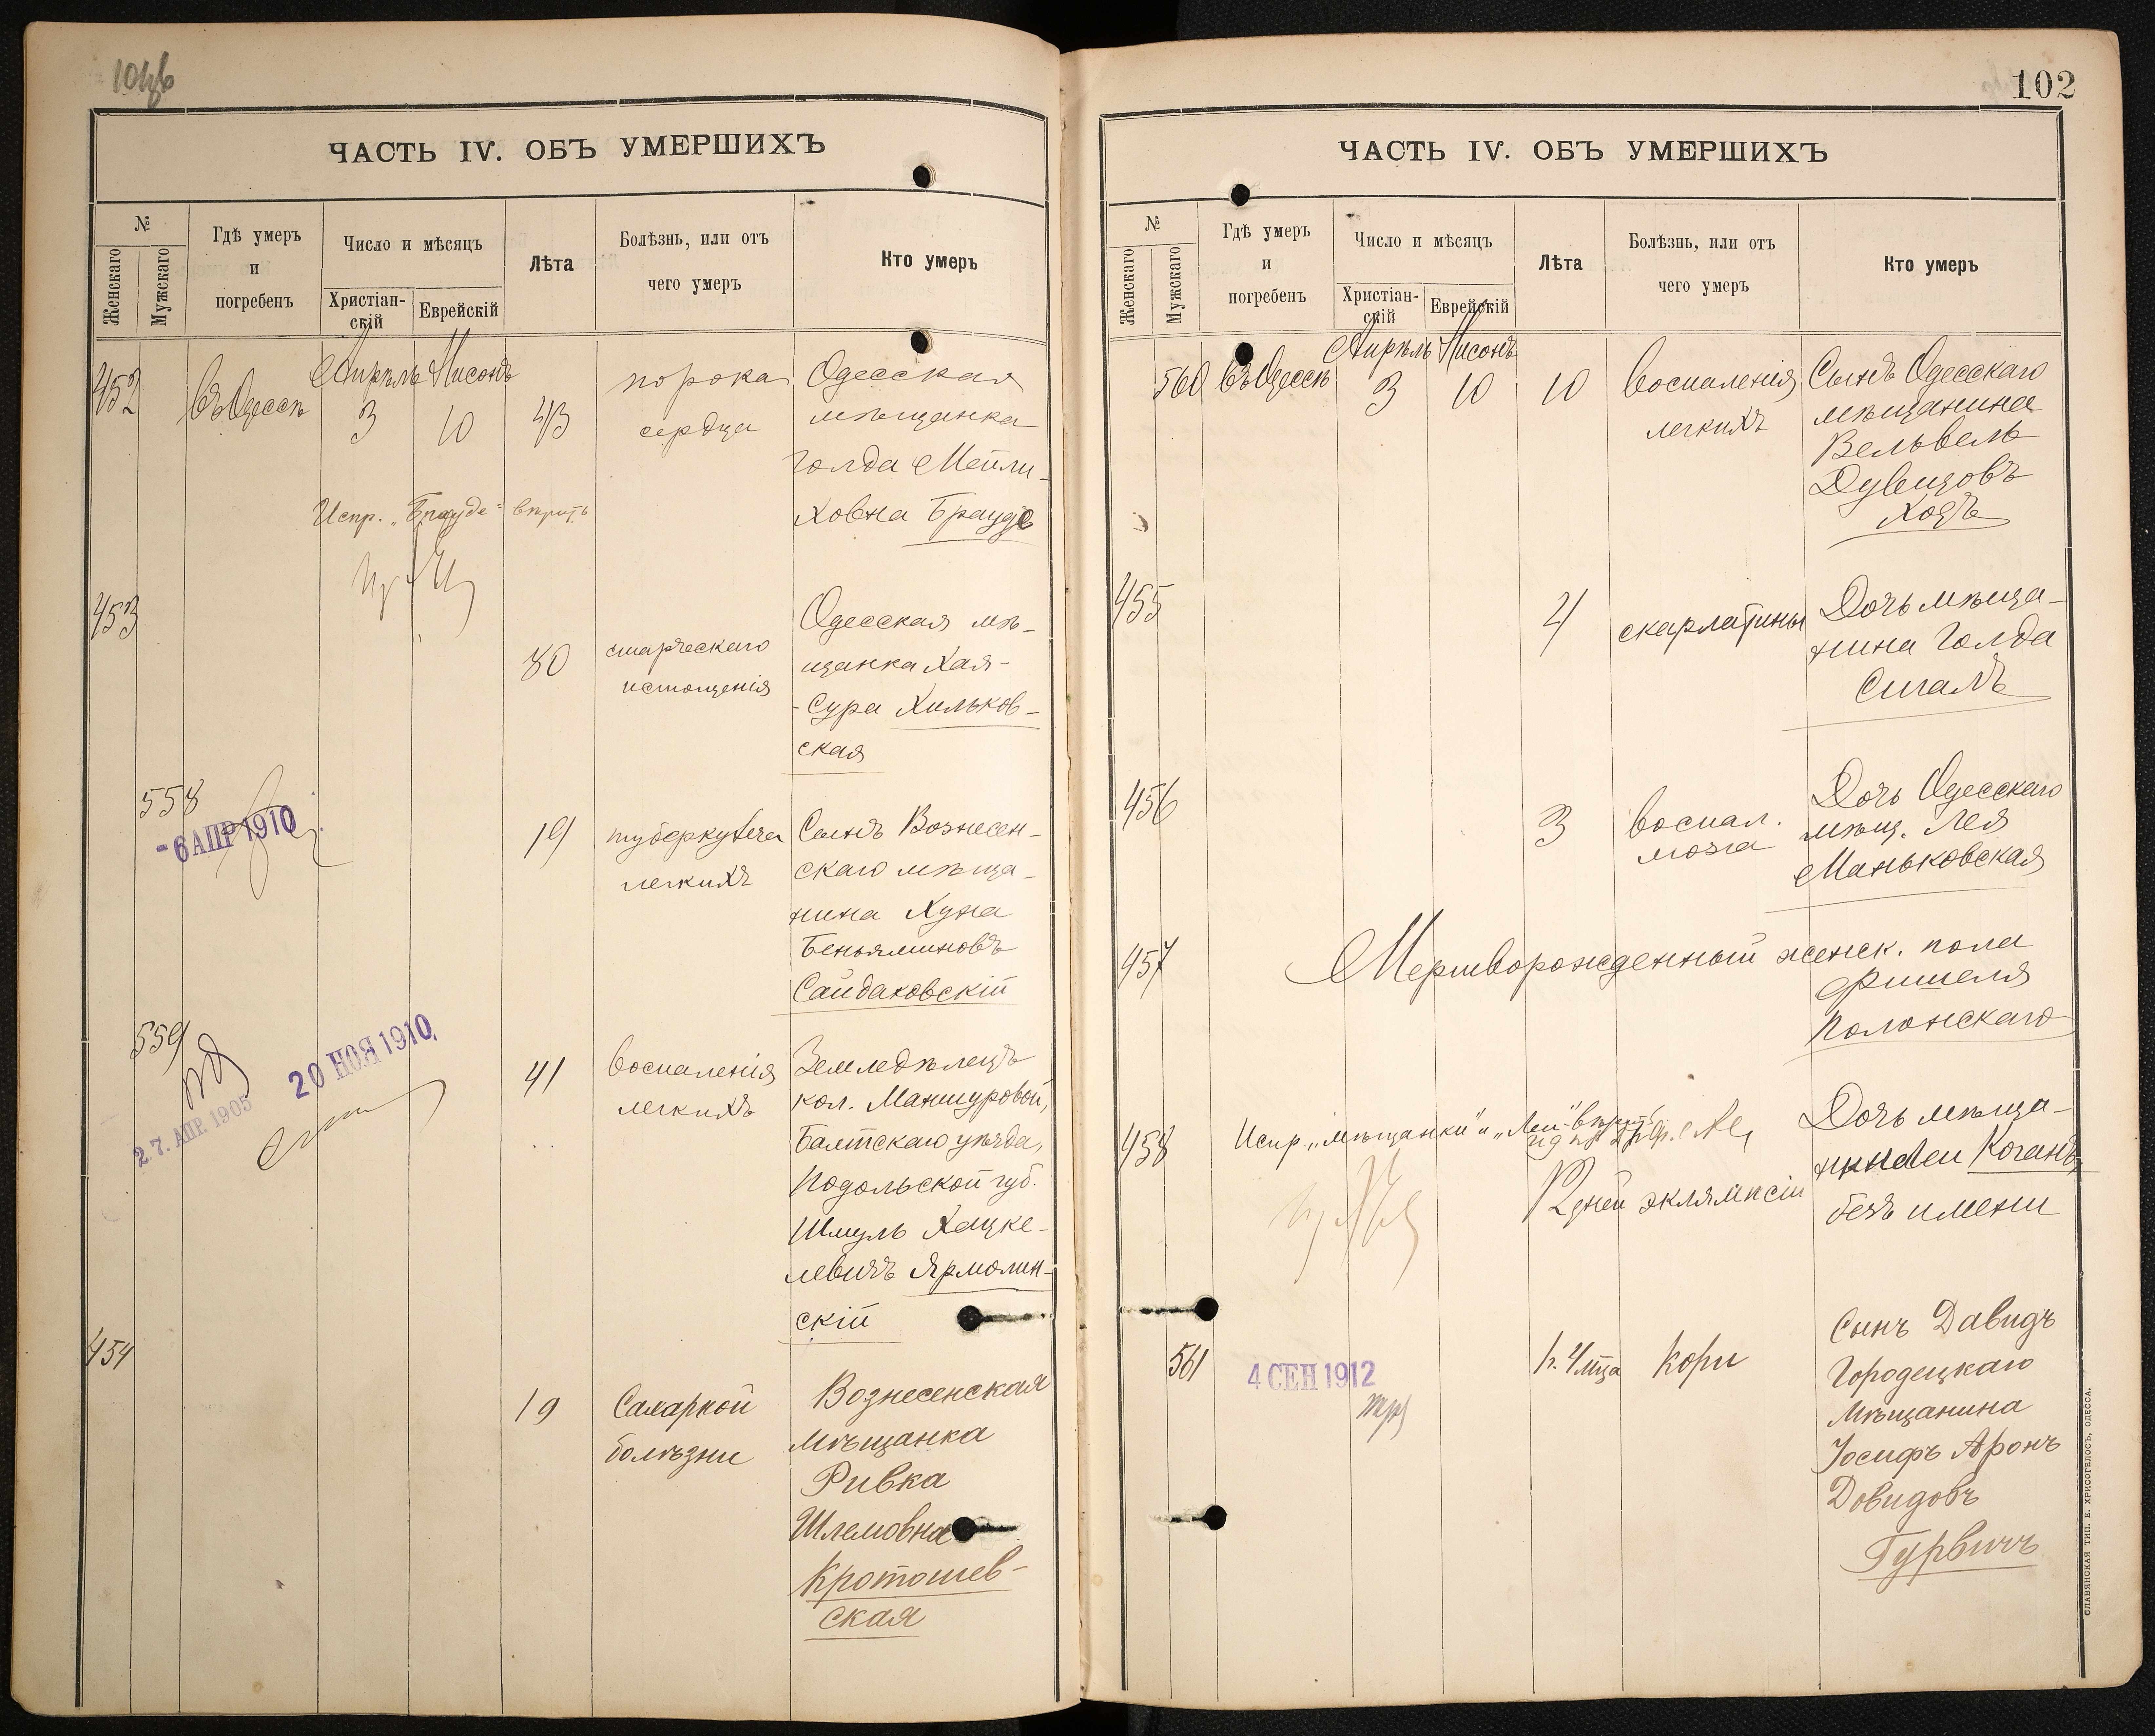 ЧАСТЬ IV. ОБЪ УМЕРШИХЪ
№
Женскаго
Мужскаго
Гдѣ умеръ
и
погребенъ
Число и мѣсяцъ
Христіан-
скій
Еврейскій
Лѣта
Болѣзнь, или отъ
чего умеръ
Кто умеръ
Апрѣль Нисонъ
452
въ Одессѣ
3
10
43
порока
сердца
Одесская
мѣщанка
Голда Мейли-
ховна Брауде
Испр. „Брауде“ вѣрить
453
80
старческаго
истощенія
Одесская мѣ-
щанка Хая-
-Сура Хильков-
ская
558
-6 АПР 1910
19
туберкулеза
легкихъ
Сынъ Вознесен-
скаго мѣща-
нина Хуна
Беньяминовъ
Сайдаковскій
559
27. АПР 1905
20 НОЯ 1910
41
воспаленія
легкихъ
Земледѣлецъ
кол. Маншуровой,
Балтскаго уѣзда,
Подольской губ.
Шмуль Хацке-
левичъ Ярмолин-
скій
454
19
Сахарной
болѣзни
Вознесенская
Мѣщанка
Ривка
Шлемовна
Кротошев-
ская
102
ЧАСТЬ IV. ОБЪ УМЕРШИХЪ
№
Женскаго
Мужскаго
Гдѣ умеръ
и
погребенъ
Число и мѣсяцъ
Христіан-
скій
Еврейскій
Лѣта
Болѣзнь, или отъ
чего умеръ
Кто умеръ
Апрѣль Нисонъ
560
въ Одессѣ
3
10
10
воспаленія
легкихъ
Сынъ Одесскаго
мѣщанина
Вельвель
Дувидовъ
455
4
скарлатины
Дочь мѣща-
нина Голда
Сигалъ
456
3
воспал.
мозга
Дочь Одесскаго
мѣщ. Лея
Маньковская
457
Мертворожденный женск. пола
Фишеля
Полонскаго
458
Испр. „мѣщанки“ и „Леи“ вѣрить
12 дней
эклямпсіи
Дочь мѣща-
нки Леи Коганъ,
безъ имени
561
4 СЕН 1912
1 г. 4 мца
Кори
Сынъ Давидъ
Городецкаго
Мѣщанина
Іосифъ Аронъ
Довидовъ
Гурвичъ
СЛАВЯНСКАЯ ТИП. Е. ХРИСОГЕЛОСЪ, ОДЕССА.